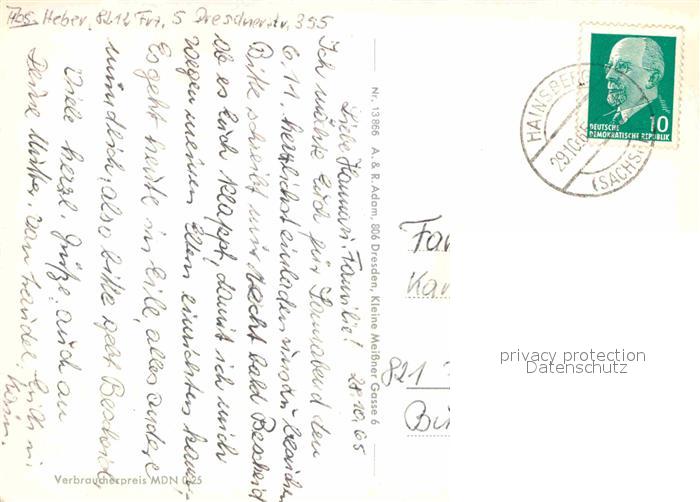 Abs. Heber, 8212 Frt. 5 Dresdnerstr. 355
28.10.65
Liebe Hannusi, Familie!
Ich möchte Euch für Sonnabend den
6.11. herzlichst einladen
Bitte schreibt mir recht bald Bescheid
ob es Euch klappt, damit ich mich
wegen meinen Eltern einrichten kann.
Es geht heute in Eile, alles andere
mündlich, also bitte gebt Bescheid.
Viele herzl. Grüße auch an
Deine Mutter.
Nr. 13866 A. & R. Adam, 806 Dresden, Kleine Meißner Gasse 6
Verbraucherpreis MDN 0,25
HAINSBERG
(SACHS)
29.10.65
10
DEUTSCHE
DEMOKRATISCHE REPUBLIK
Fam
821
privacy protection
Datenschutz